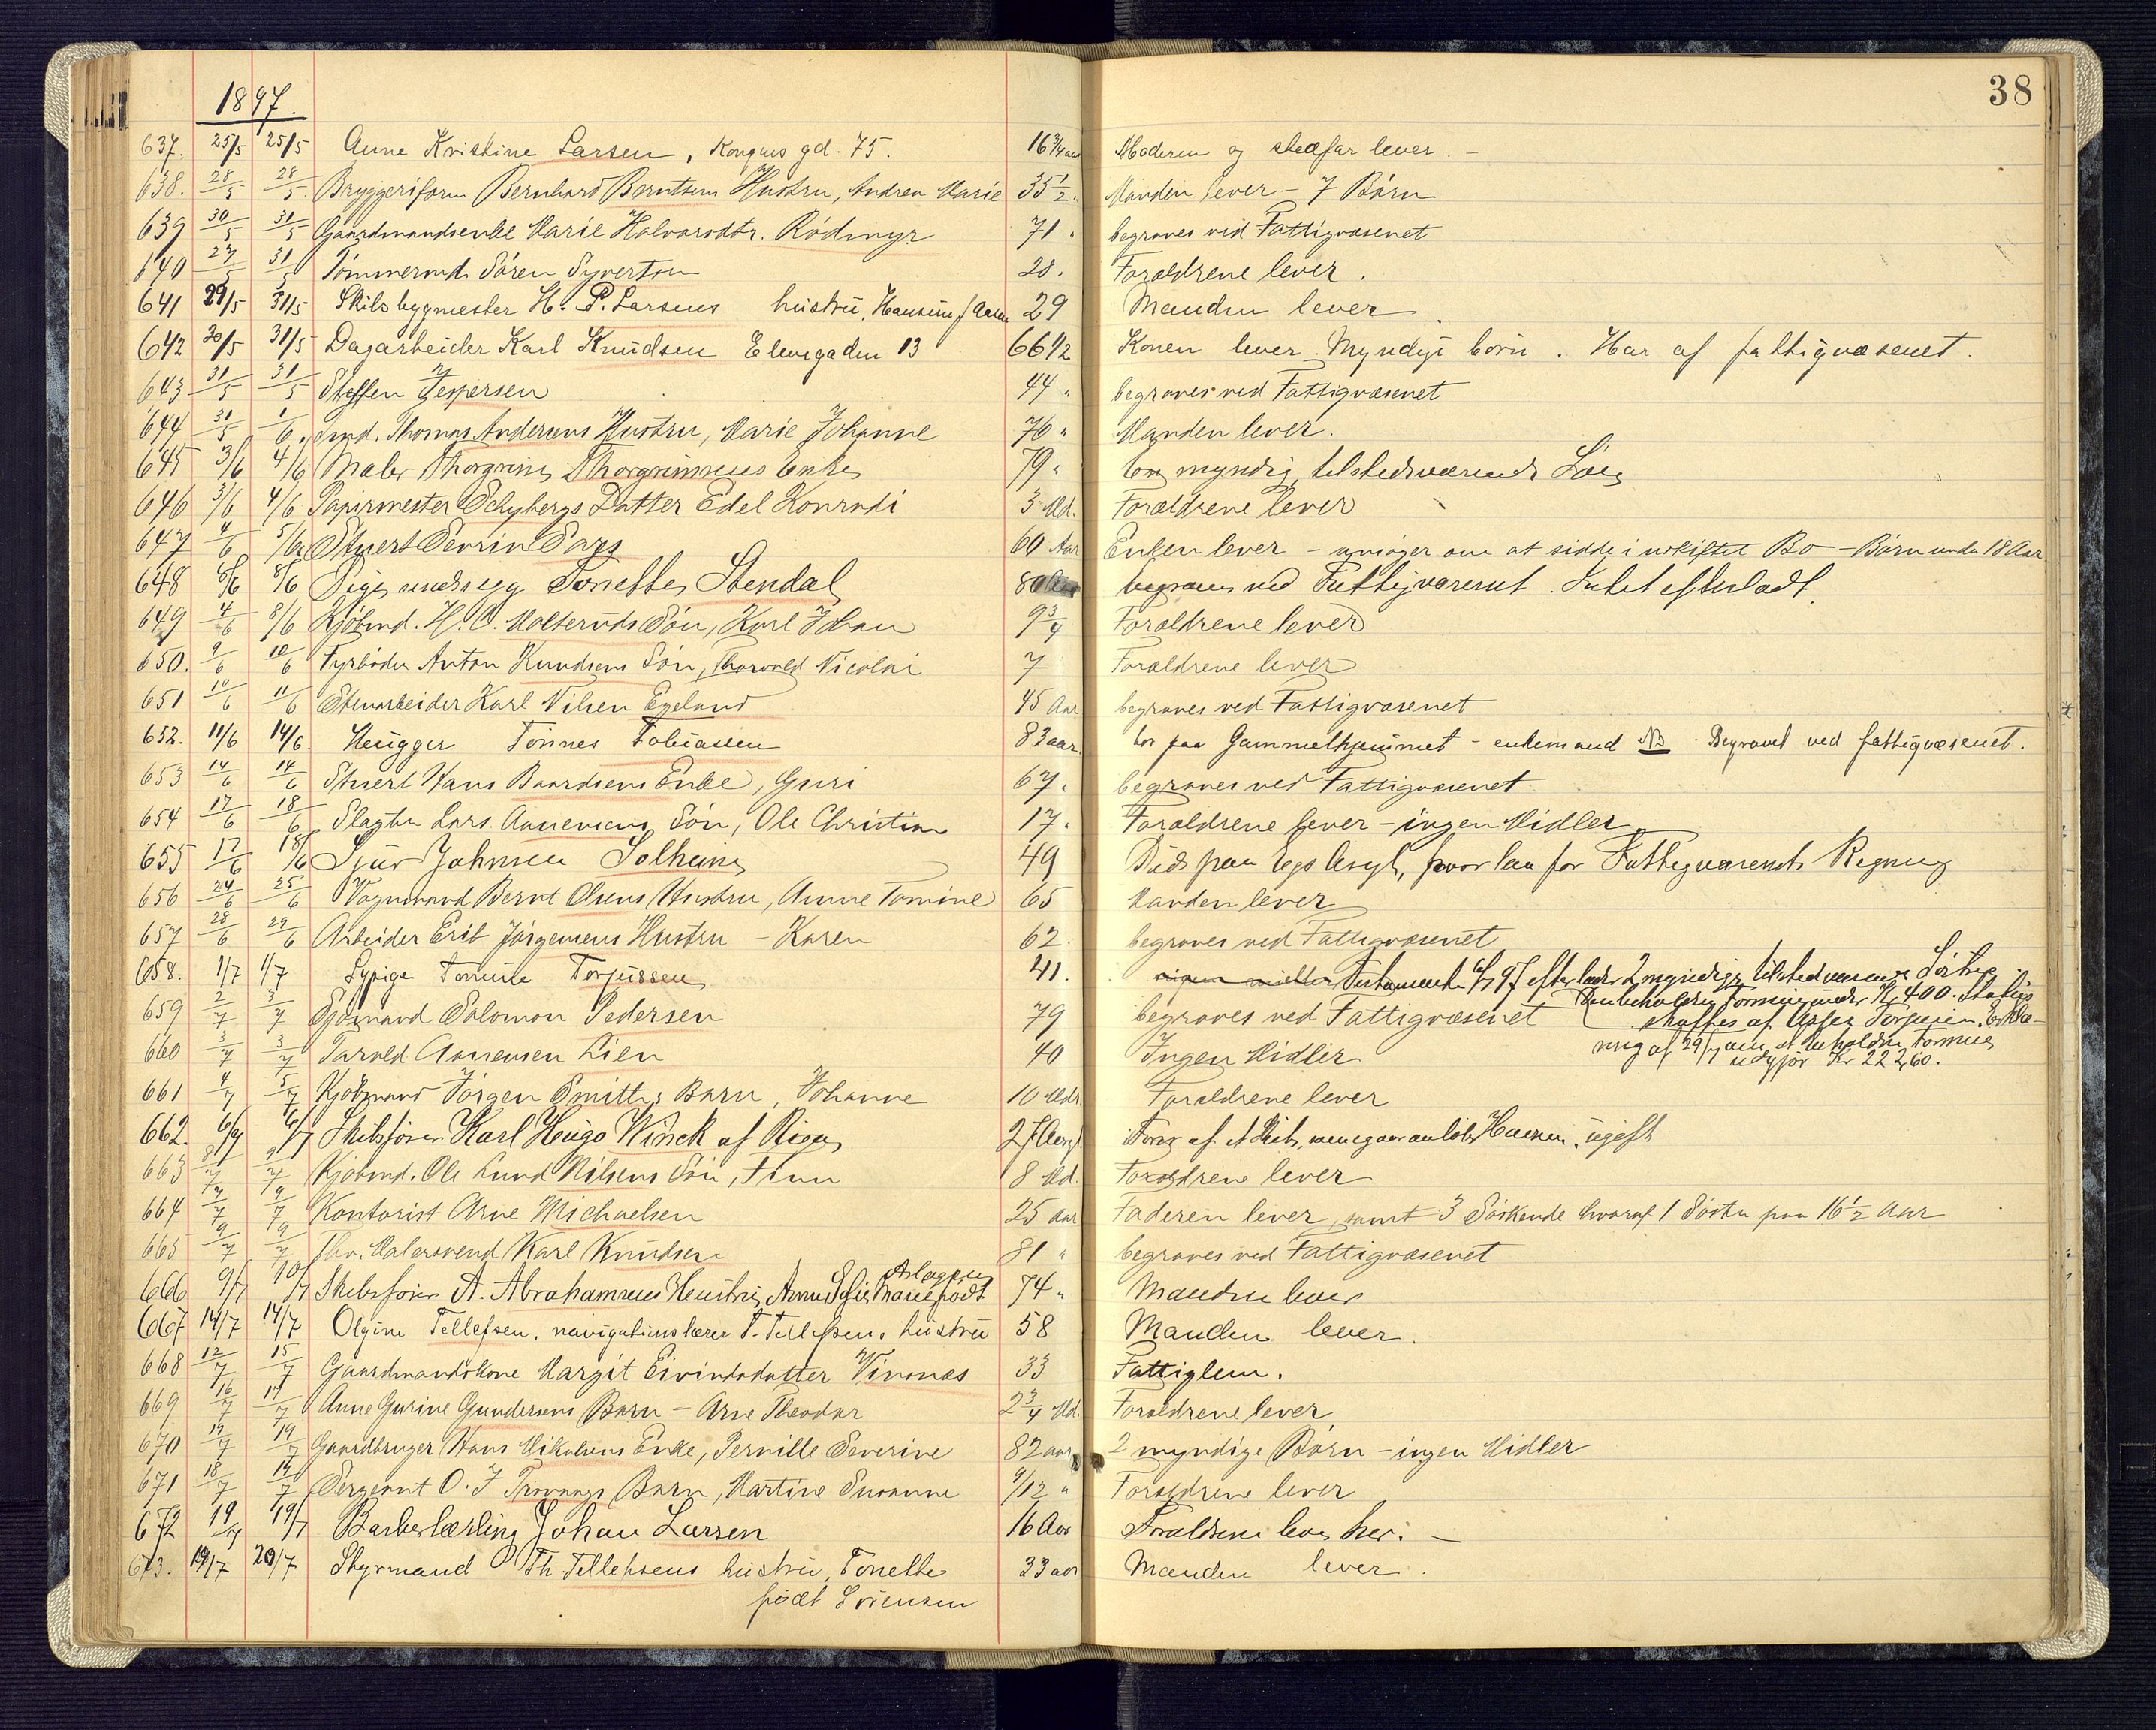 38
1897.
637. 25/5 25/5 Anne Kristine Larsen, Kongens gd. 75. 16 3/4 aar Moderen og stedfar lever. -
638. 28/5 28/5 Bryggeriform Bernhard Berntsens Hustru, Andrea Marie 35 1/2. Manden lever - 7 Børn
639 30/5 31/5 Gaardmandsenke Marie Halvorsdtr. Rødmyr 71 " begraves ved Fattigvæsenet
640 27/5 31/5 Tømmermd. Søren Syvertsen 28. Forældrene lever.
641 29/5 31/5 Skibsbygmester H. P. Larsens hustru, f 29 Manden lever.
642 30/5 31/5 Dagarbeider Karl Knudsen Elvegaden 13 66 1/2 Konen lever. Myndige børn. Har af fattigvæsenet.
643 31/5 31/5 Steffen Jespersen 44 " begraves ved Fattigvæsenet
644 31/5 1/6 Thomas Andersens Hustru, Marie Johanne 76 " Manden lever.
645 3/6 4/6 Maler Thorgrim Thorgrimsens Enke 79 " En myndig, tilstedeværende Søn
646 3/6 4/6 Papirmester Schybergs Datter Edel Konradi 3 Md. Forældrene lever
647 4/6 5/6 Stuert Severin Sars 60 Aar Enken lever - ansøger om at sidde i uskiftet Bo - Børn under 18 Aar
648 8/6 8/6 Pige Tonette Stendal 80 Aar begraves ved Fattigvæsenet. Intet efterladt.
649 4/6 8/6 Kjøbmd. H. C. Malteruds Søn, Karl Johan 9 3/4 Forældrene lever
650. 9/6 10/6 Fyrbøder Anton Knudsens Søn, Thorvald Nicolai 7 Forældrene lever
651 10/6 11/6 Stenarbeider Karl Nilsen Egeland 45 Aar begraves ved Fattigvæsenet
652. 11/6 14/6. Tønnes Tobiassen 83 aar. bor paa Gammelhjemmet - enkemand NB Begravet ved fattigvæsenet.
653 14/6 14/6 Stuert Hans Baardsens Enke, Guri 67. begraves ved Fattigvæsenet
654 17/6 18/6 Slagter Lars Aanensens Søn, Ole Christian 17. Forældrene lever - ingen Midler
655 17/6 18/6 Sjur Johnsen Solheim 49 Død paa Egs Asyl, hvor laa for Fattigvæsenets Regning
656 24/6 25/6 Vognmand Bernt Olsens Hustru, Anne Tomine 65 Manden lever
657 28/6 29/6 Arbeider Erik Jørgensens Hustru - Karen 62. begraves ved Fattigvæsenet
658. 1/7 1/7 Sypige Tomine Torjussen 41. ingen midler Testamente efterlader 2 myndige, tilstedeværende Søstre
under Kr 400.
skaffes af
659 2/7 3/7 Sømand Salomon Pedersen 79 begraves ved Fattigvæsenet
af 29/7 om at beholdne Formue
udgjør Kr 222,60.
660 3/7 3/7 Tarald Aanensen Lien 40 Ingen Midler
661 4/7 5/7 Kjøbmand Jørgen Smitts Barn, Johanne 10 Mdr Forældrene lever
662. 6/7 6/7 Skibsfører Karl Hugo Winck af Riga, 27 Aar Fører af et Skib, ugift
663 8/7 9/7 Kjøbmd. Ole Lund Nilsens Søn, Finn 8 Md. Forældrene lever
664 7/7 9/7 Kontorist Arne Michaelsen 25 aar Faderen lever, samt 3 Søskende hvoraf 1 Søster paa 16 1/2 Aar
665 9/7 9/7 fhv. Malersvend Karl Knudsen 81 " begraves ved Fattigvæsenet
666 9/7 10/7 Skibsfører A. Abrahamsens Hustru, Anne Marie født Aslagsen 74 " Manden lever
667 14/7 14/7 Olgine Tellefsen, navigationslærer T. Tellefsens hustru 58 Manden lever.
668 12/7 15/7 Gaardmandskone Margit Eivindsdatter Vinnæs 33 Fattiglem.
669 16/7 17/7 Anne Gurine Gundersens Barn - Arne Theodor 2 3/4 Md. Forældrene lever
670 17/7 19/7 Gaardbruger Hans Mikalsens Enke, Pernille Severine 82 aar 2 myndige Børn - ingen Midler
671 18/7 19/7 Sergeant O. J Barn, Martine Susanne 9/12 " Forældrene lever
672 19/7 19/7 Barberlærling Johan Larsen 16 Aar Forældrene lever her. -
673. 19/7 20/7 Styrmand Th. Tellefsens hustru, Tonette 33 aar Manden lever.
født Sørensen